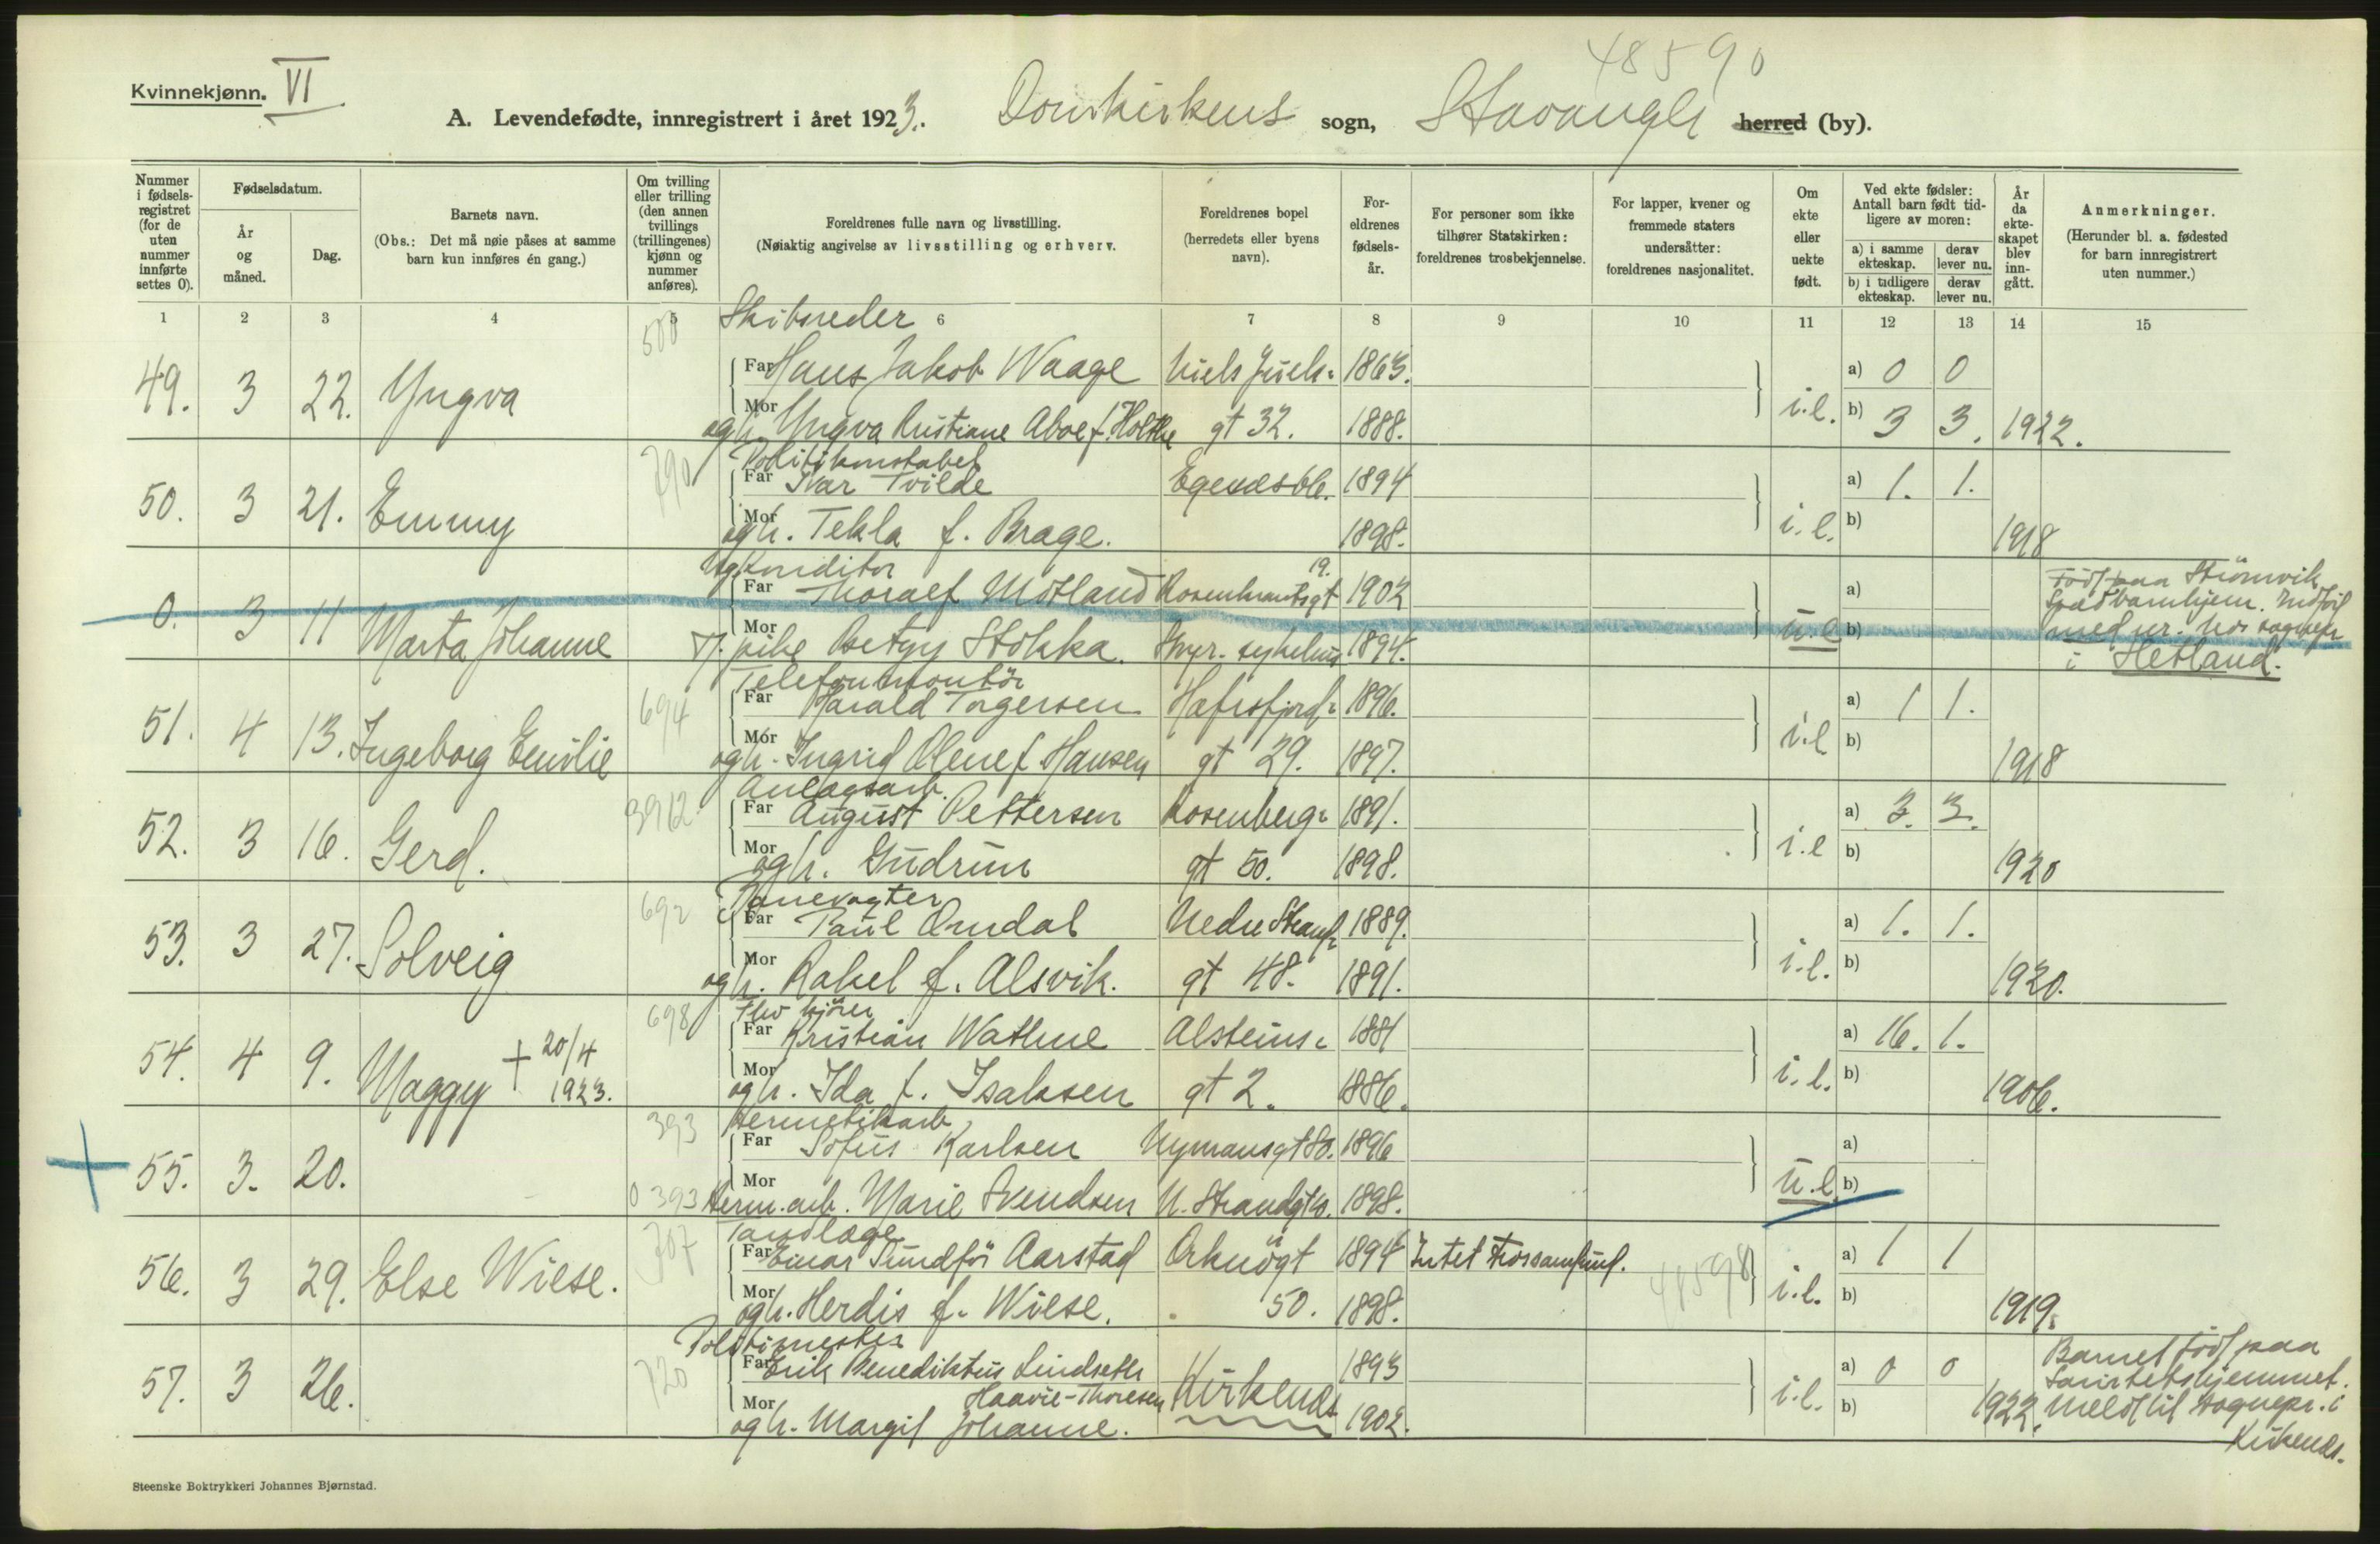 48590
Kvinnekjønn. VI
A. Levendefødte, innregistrert i året 1923. Domkirkens sogn, Stavanger herred (by).
Nummer i fødsels-registret (for de uten nummer innførte settes 0).
Fødselsdatum.
År og måned.
Dag.
Barnets navn.
(Obs.: Det må nøie påses at samme barn kun innføres én gang.)
Om tvilling eller trilling (den annen tvillings (trillingenes) kjønn og nummer anføres).
Foreldrenes fulle navn og livsstilling.
(Nøiaktig angivelse av livsstilling og erhverv.
Foreldrenes bopel (herredets eller byens navn).
For-eldrenes fødsels-år.
For personer som ikke tilhører Statskirken: foreldrenes trosbekjennelse.
For lapper, kvener og fremmede staters undersåtter: foreldrenes nasjonalitet.
Om ekte eller uekte født.
Ved ekte fødsler: Antall barn født tid-ligere av moren:
a) i samme ekteskap.
derav lever nu.
b) i tidligere ekteskap.
derav lever nu.
År da ekte-skapet blev inn-gått.
Anmerkninger.
(Herunder bl. a. fødested for barn innregistrert uten nummer.)
1 2 3 4 5 6 7 8 9 10 11 12 13 14 15
500 Skibsreder
49. 3 22. Yngva Far Hans Jakob Waage Niels Juels- 1863. i.e. a) 0 0
Mor og h. Yngva Kristiane Aboe f. Holthe gt 32. 1888. b) 3 3. 1922.
790 Politikonstabel
50. 3 21. Emmy Far Ivar Tvilde Egenæsbl. 1894 i.e. a) 1. 1.
Mor og h. Tekla f. Brage. 1898. b) 1918
Ugkonditor
0. 3 11 Marta Johanne Far Thoralf Motland Rosenkrantsgt 19. 1902 u.e a) Född paa Strömvik
Mor T. pike Betzy Stokka. Styr. sykehus 1894. b) Spædbarnhjem. Indförl
med nr. hos sognepr
i Hetland.
694 Telefonmontör
51. 4 13. Ingeborg Emilie Far Harald Torgersen Hafrsfjord- 1896. i.e a) 1 1.
Mor og h. Ingrid Olene f. Hansen gt 29. 1897. b) 1918
3912 Anlagsarb.
52. 3 16. Gerd. Far August Pettersen Rosenberg- 1891. i.e a) 3. 3.
Mor og h. Gudrun gt 50. 1898. b) 1920
692 Banevogter
53. 3 27. Solveig Far Paul Omdal Nedre Strand- 1889. i.e. a) 1. 1.
Mor og h. Rakel f. Alsvik. gt 48. 1891. b) 1920.
698 Thv kjörer
54. 4 9. Maggy + 20/4 1923. Far Kristian Wathne Alsteins- 1881 i.e. a) 16. 1.
Mor og h. Ida f. Isaksen gt 2. 1886. b) 1906.
393 Hermetikarb.
55. 3. 20. Far Sofus Karlsen Nymansgt 80. 1896 u.e. a)
0 393 Mor Herm. arb. Marie Svendsen N. Strandgt 10. 1898. b)
707 Tandlæge
56. 3 29. Else Wiese. Far Einar Sundför Aarstad Orknögt 1894 Intet trossamfund. 48598 i.e. a) 1 1
Mor og h. Herdis f. Wiese. 50. 1898. b) 1919.
720 Politimester
57. 3 26. Far Erik Benediktus Lindseth Kirkenæs 1893 i.e. a) 0 0 Barnet född paa
Haavie-Thoresen Sanitetshjemmet.
Mor og h. Margit Johanne. 1902. b) 1922. Meldt til sognepr. i
Kirkenæs.
Steenske Boktrykkeri Johannes Bjørnstad.